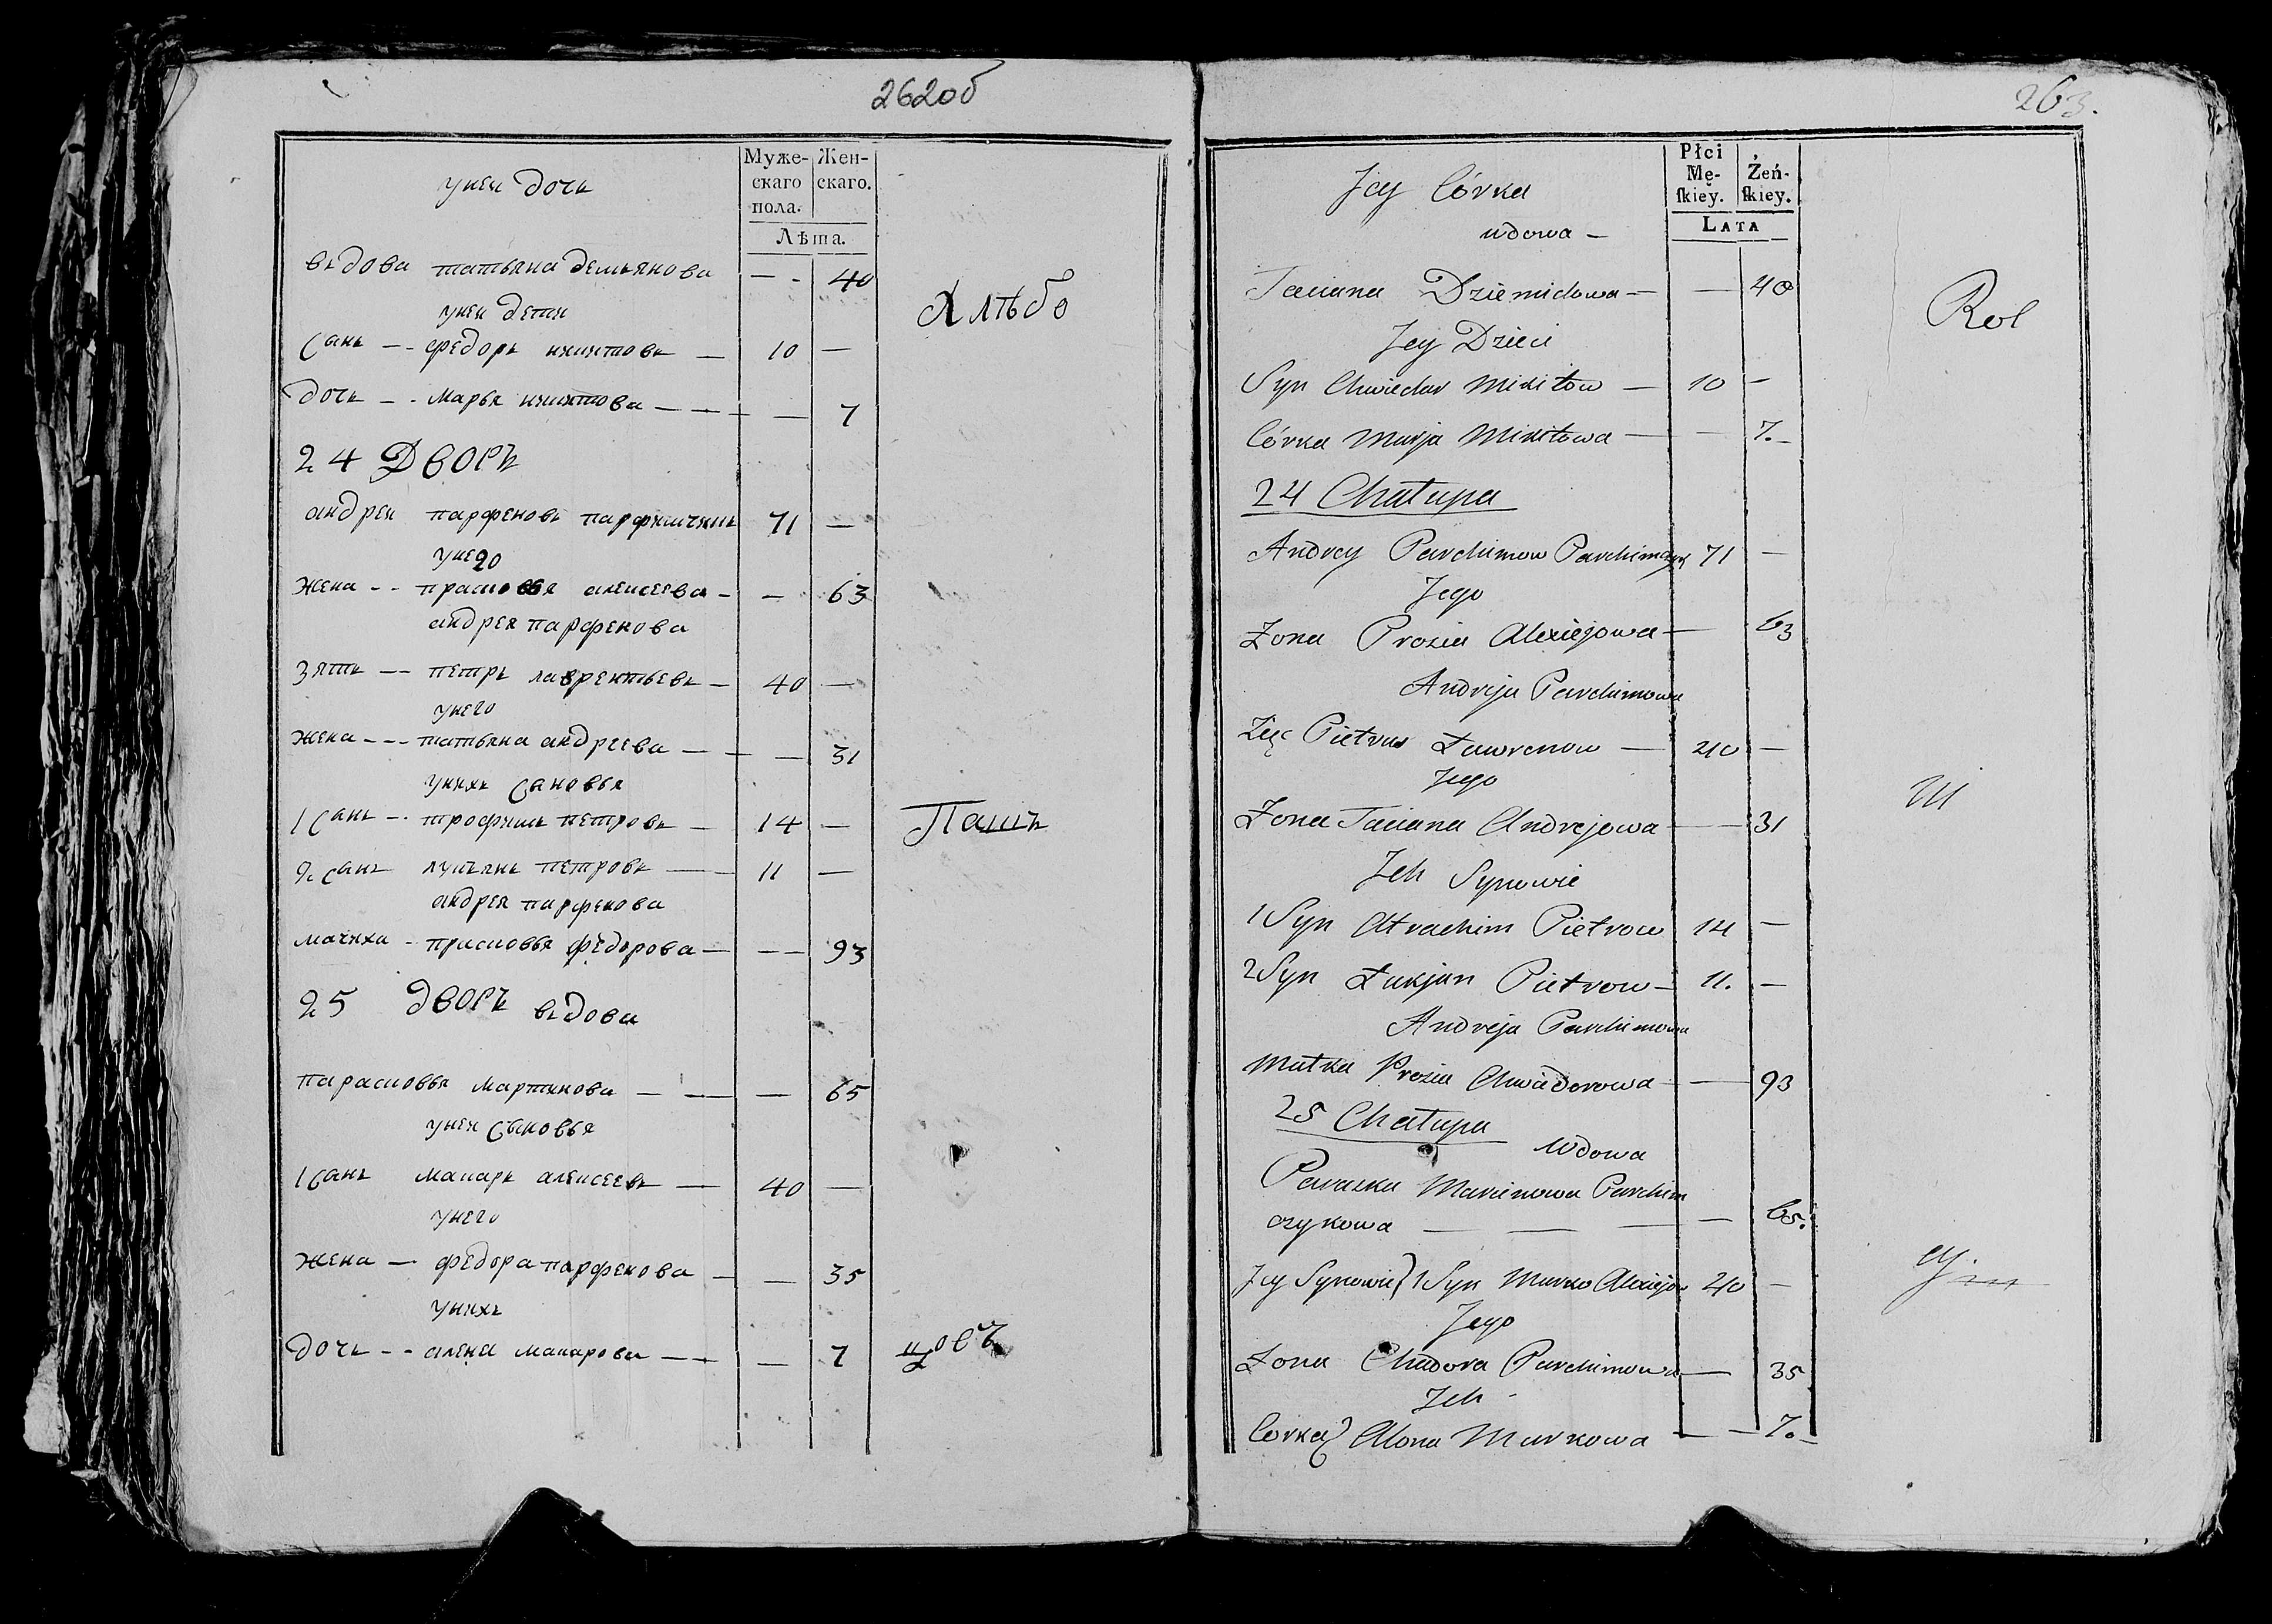 262об
Муже-
скаго
пола.
Жен-
скаго.
Лѣта.
унеи дочь
вьдова татьяна демьянова — - 40
унеи дети
Сань -- федоръ никитовъ — 10 —
дочь -- Марья никитова — — 7
Хлѣбо
24 Дворъ
андреи парфеновъ парфимчикъ 71 —
унего
жена -- прасковья алексеева - — 63
андрея парфенова
зять -- петръ лаврентьевъ — 40 —
унего
жена --- татьяна андреева — — 31
унихъ Сановья
1 Сань -- трофимъ петровъ — 14 —
Пашъ
2 Сань лукьянъ петровъ — 11 —
андрея парфенова
мачиха - присковья федорова — — 93
25 дворъ вьдова
парасковья мартинова — — — 65
унеи Сыновья
1 Сань макаръ алексеевъ — 40 —
унего
жена — федора парфенова — — 35
унихъ
дочь -- алена макарова — — 7
цовъ
263.
Płci
Mę-
skiey.
Żeń-
skiey.
LATA
Jey Córka
wdowa —
Taciana Dziemidowa — — 40
Rol
Jey Dzieci
Syn Chwiedar Mikitow — 10 —
Córka Marja Mikitowa — — 7.
24 Chałupa
Andrey Parchimow Parchimczyk 71 —
Jego
Żona Prosia Alexiejowa — 63
Andreja Parchimowa
Zięć Pietrus Ławrenow — 40 —
Jego
Żona Taciana Andrejowa — 31
ni
Jch Synowie
1 Syn Atrachim Pietrow 14 —
2 Syn Łukjan Pietrow — 11. —
Andreja Parchimowa
Matka Prosia Chwiedorowa — — 93
25 Chałupa
Wdowa
Paraska Marcinowa Parchim
czykowa — — — — 65.
Jey Synowie) 1 Syn Marko Alexiejow 40 —
cy.
Jego
Żona Chadora Parchimowa — 35
Jch
Corka) Alona Markowa — — 7.